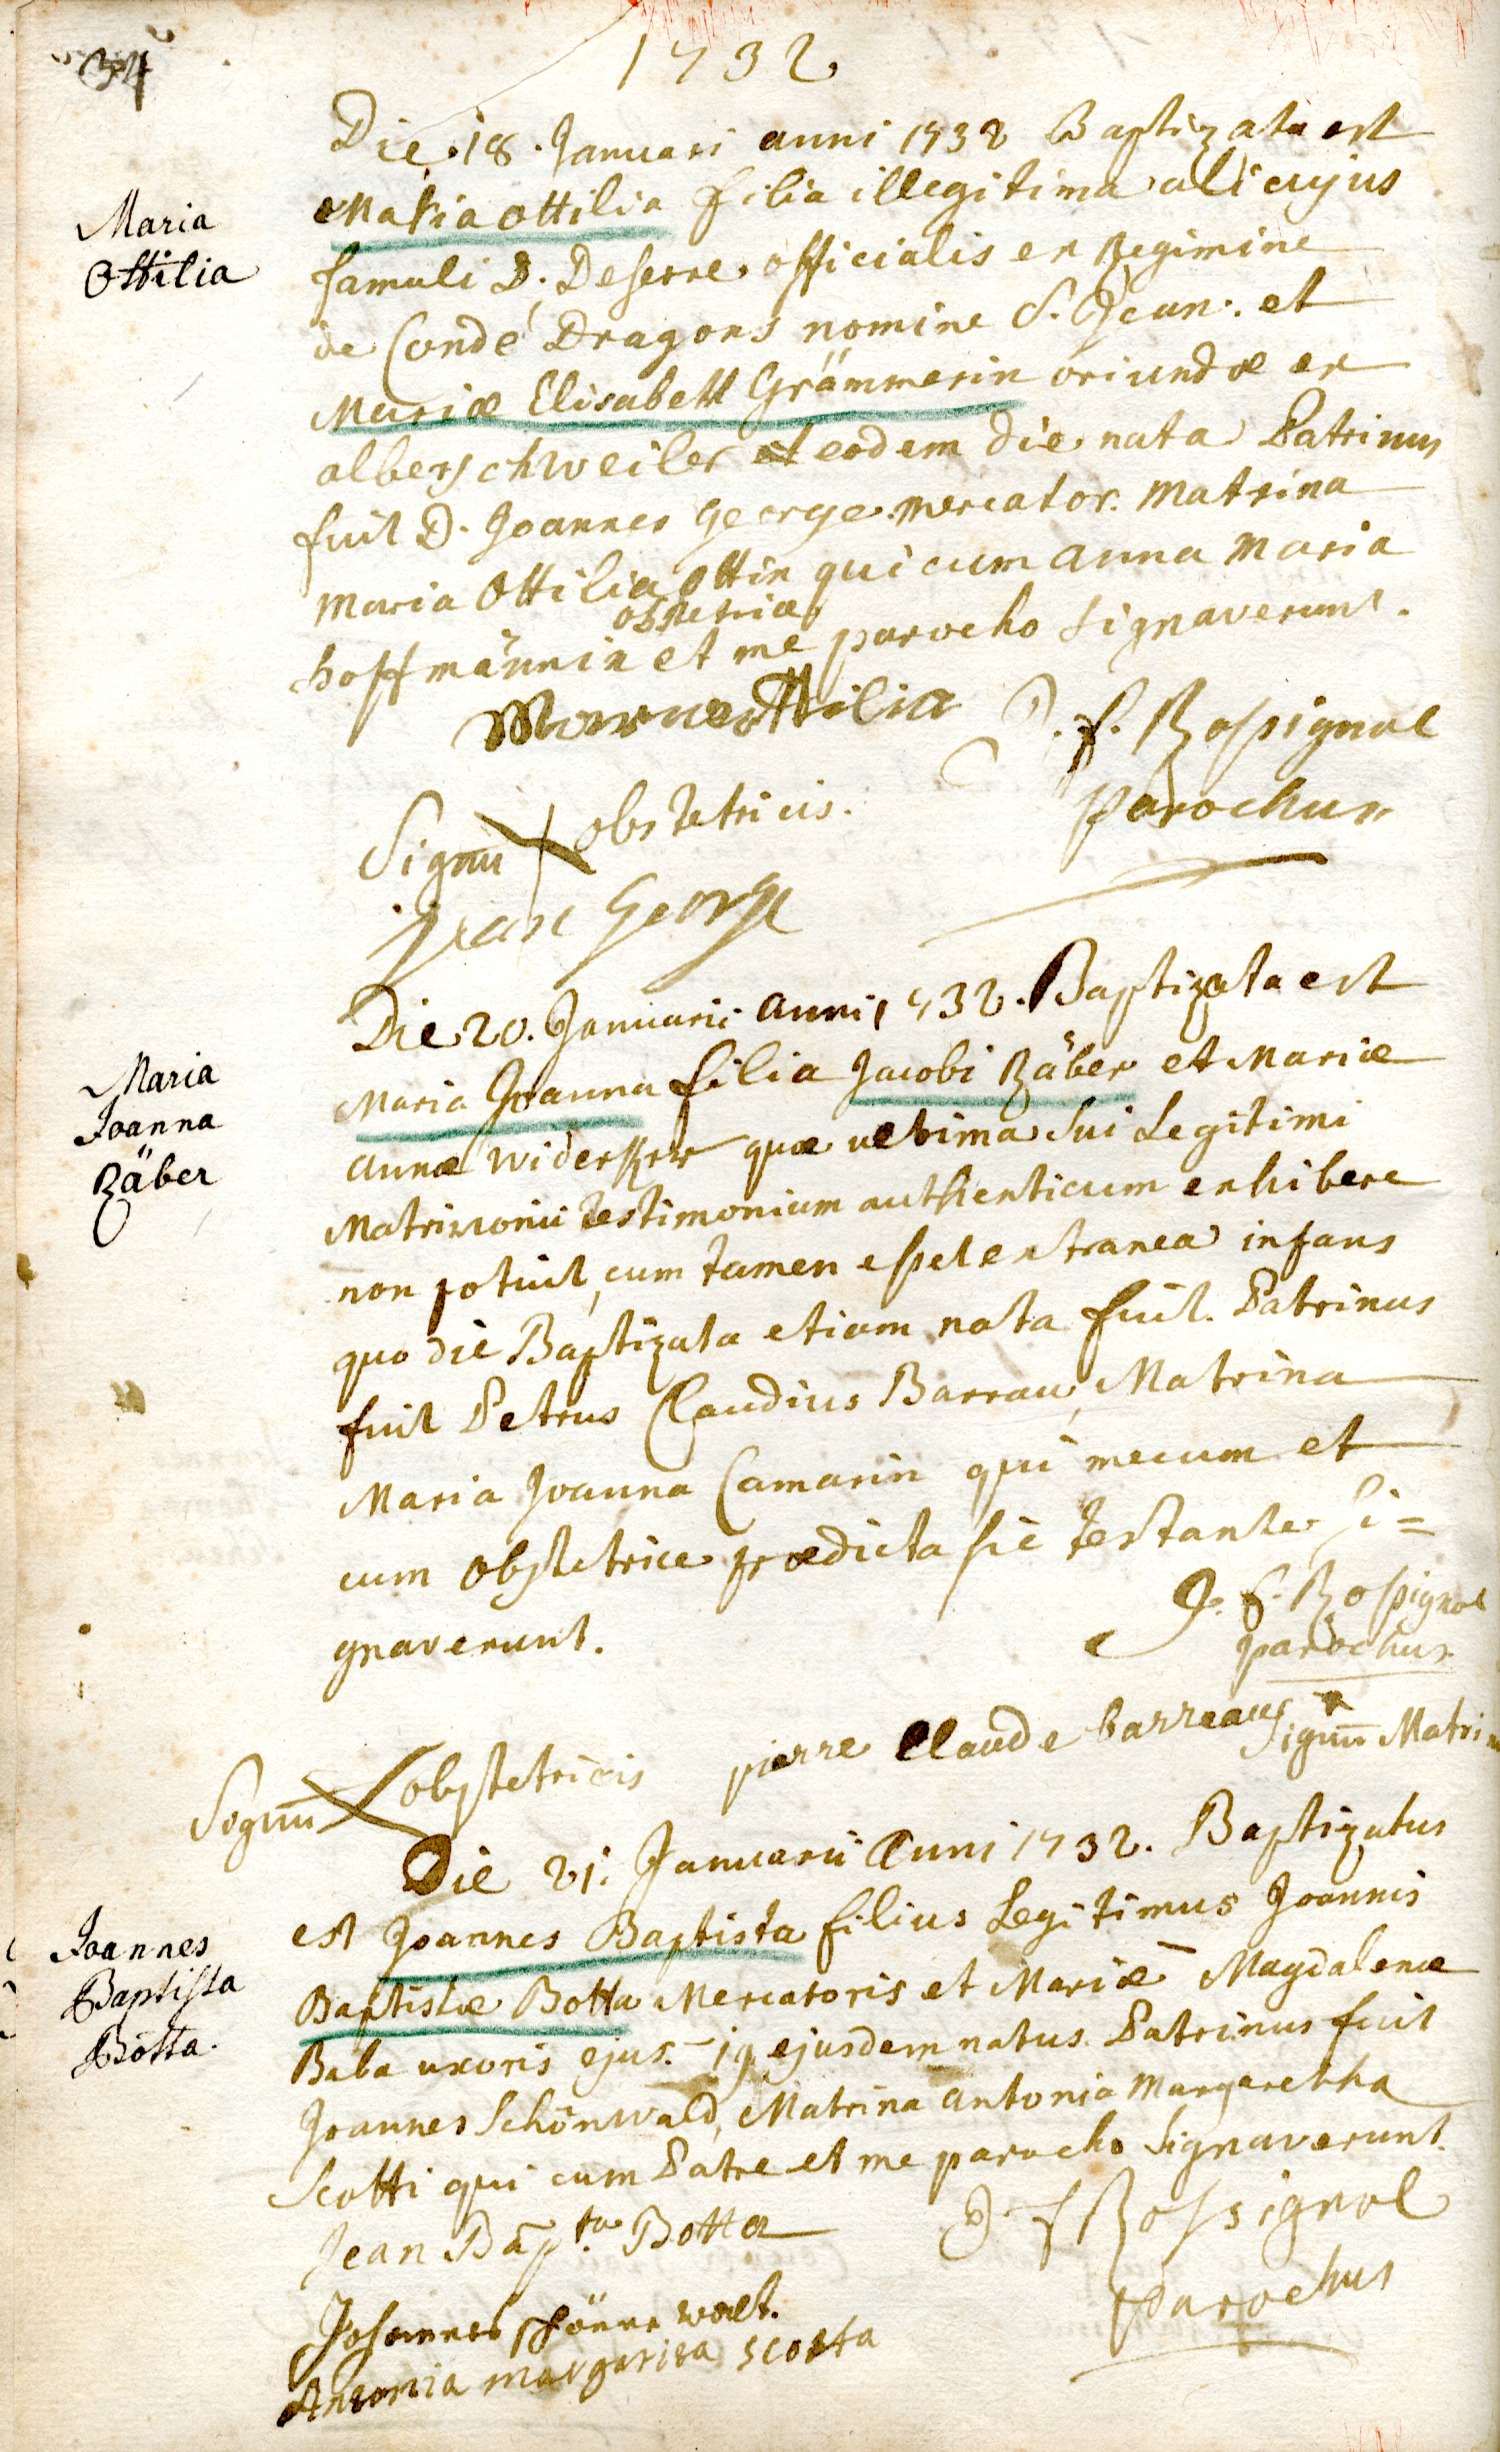 34
1732
Die 18. Januari anni 1732 Baptizata est
Maria Ottilia filia illegitima alicujus
famuli D. Deserre officialis ex Regimine
de Condé Dragons nomine S. Jean. et
Mariæ Elisabeth Grämmerin oriundæ ex
alberschweiler eodem die nata Patrinus
fuit D. Joannes George mercator. Matrina
Maria Ottilia Ottin qui cum anna Maria
obstetrice
hoffmännin et me parocho signaverunt.
Maria Ottilia
J. f. Rossignol
parochus
Signū X obstetricis.
jean George
Maria
Ottilia
Die 20. Januarii anni 1732. Baptizata est
Maria Joanna filia Jacobi Räber et Mariæ
annæ quæ ultima sui Legitimi
Matrimonii testimonium authenticum exhibere
non potuit, cum tamen esset extranea infans
quo die Baptizata etiam nata fuit. Patrinus
fuit Petrus Claudius Barrau, Matrina
Maria Joanna Camarin qui mecum et
cum obstetrice prædicta sic testante si=
gnaverunt.
J. f. Rossignol
parochus
Maria
Joanna
Räber
Signū X obstetricis pierre Claude barreaux Signū Matri
Die 21. Januarii Anni 1732. Baptizatus
est Joannes Baptista filius Legitimus Joannis
Baptistæ Botta Mercatoris et Mariæ Magdalenæ
Baba uxoris ejus. 19 ejusdem natus. Patrinus fuit
Joannes Schönwald, Matrina antonia Margaretha
Scotti qui cum Patre et me parocho signaverunt.
Jean Bap.ta Botta
J. f Rossignol
parochus
Johannes schönne walt.
Antonia margarita scotta
Joannes
Baptista
Botta.